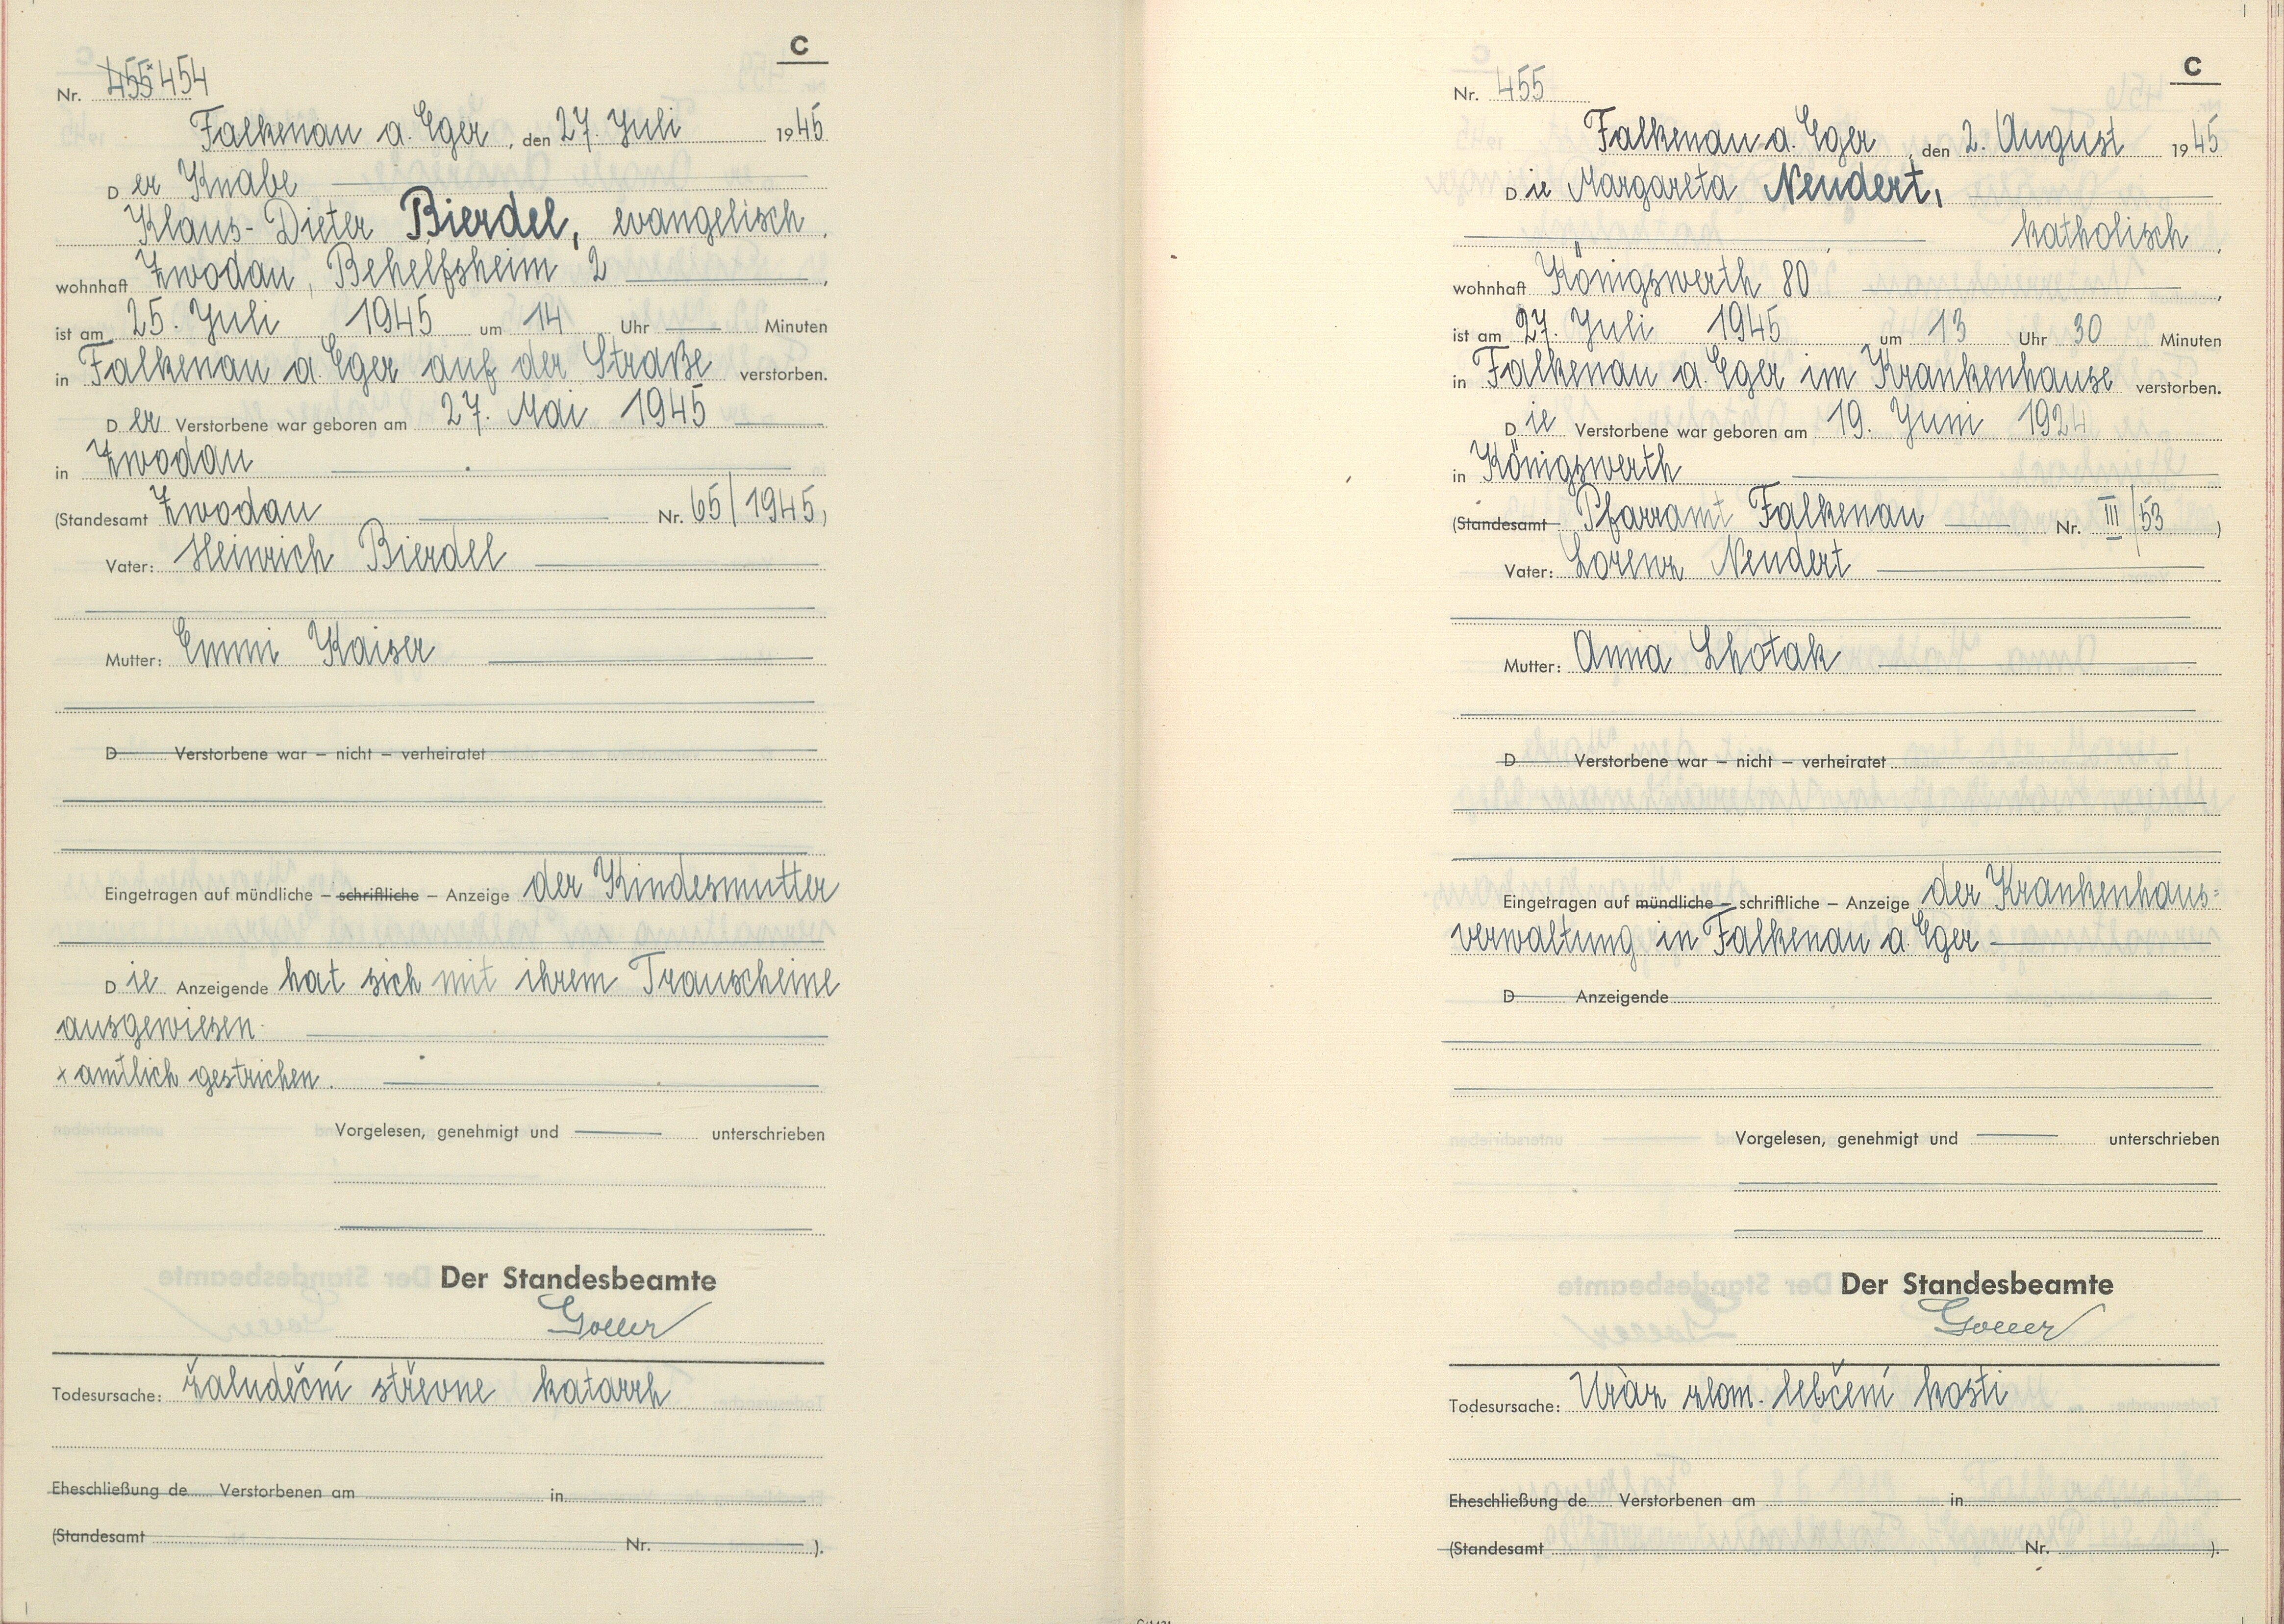 C
Nr. 455× 454
Falkenau a. Eger, den 27. Juli 1945
Der Knabe
Klaus-Dieter Bierdel, evangelisch,
wohnhaft Zwodau, Behelfsheim 2,
ist am 25. Juli 1945 um 14 Uhr Minuten
in Falkenau a. Eger auf der Straße verstorben.
Der Verstorbene war geboren am 27. Mai 1945
in Zwodau
(Standesamt Zwodau Nr. 65/1945)
Vater: Heinrich Bierdel
Mutter: Emmi Kaiser
D Verstorbene war – nicht – verheiratet
Eingetragen auf mündliche – schriftliche – Anzeige der Kindesmutter
Die Anzeigende hat sich mit ihrem Trauscheine
ausgewiesen.
× amtlich gestrichen.
Vorgelesen, genehmigt und unterschrieben
Der Standesbeamte
Goller
Todesursache: žaludeční střevne katarrh
Eheschließung de Verstorbenen am in
(Standesamt Nr. ).
C
Nr. 455
Falkenau a. Eger, den 2. August 1945
Die Margareta Neudert,
katholisch,
wohnhaft Königswerth 80,
ist am 27. Juli 1945 um 13 Uhr 30 Minuten
in Falkenau a. Eger im Krankenhause verstorben.
Die Verstorbene war geboren am 19. Juni 1924
in Königswerth
(Standesamt Pfarramt Falkenau Nr. III/53)
Vater: Lorenz Neudert
Mutter: Anna Lhotak
D Verstorbene war – nicht – verheiratet
Eingetragen auf mündliche – schriftliche – Anzeige der Krankenhaus=
verwaltung in Falkenau a. Eger
D Anzeigende
Vorgelesen, genehmigt und unterschrieben
Der Standesbeamte
Goller
Todesursache: Uráz zlom. lebčení kosti
Eheschließung de Verstorbenen am in
(Standesamt Nr. ).